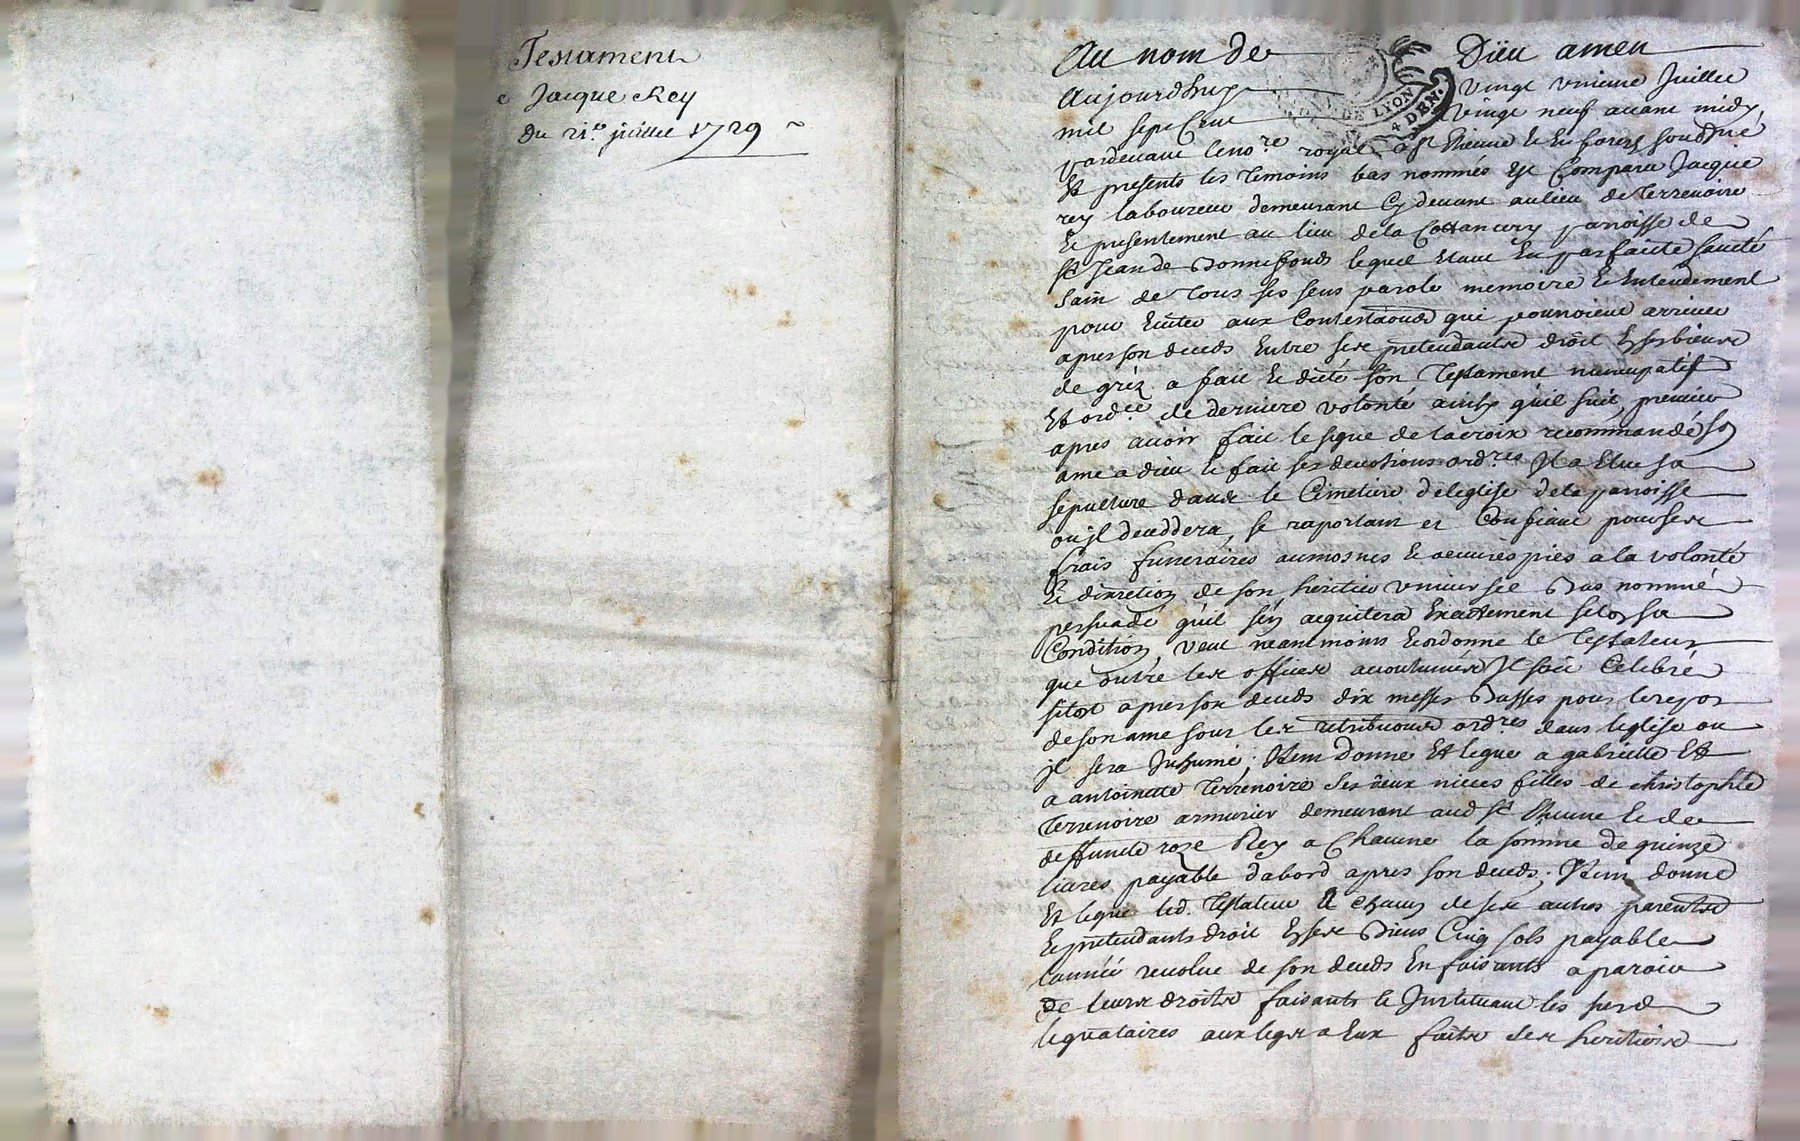 Testament
e Jacque Rey
du 21.e juillet 1729
Au nom de Dieu amen
Aujourdhuy vingt unieme Juillet
mil sept Cent vingt neuf avant midy
pardevant le no.re royal a St Etienne le en forez soubzné
Et presents les temoins bas nommés Est Comparu Jacque
rey laboureur demeurant Cy devant au lieu de Terrenoire
Et presentement au lieu de la Cottancery parroisse de
St Jean de Bonnefonds lequel Etant En parfaitte santé
sain de tous ses sens parole memoire Et Entendement
pour Eviter aux Contestaons qui pourroient arriver
apres son deceds Entre ses pretendants droit Esses biens
de gréz a fait Et dicté son Testament nuncupatif
Et ord.ce de derniere volonté ainsy quil suit, premier
apres avoir fait le signe de la croix recommandé son
ame a dieu Et fait ses devotions ord.res Il a Elu sa
sepulture dans le Cimetiere de leglise de la parroisse
ou il deceddera, se raportant et Confiant pour ses
frais funeraires aumosnes Et oeuvres pies a la volonté
Et discretion de son heritier universel Bas nommé
persuadé quil sen acquitera Exactement selon sa
Condition, veut neantmoins Et ordonne le Testateur
que outre les offices accoutumés Il soit Celebré
sitost apres son deceds dix messes Basses pour le repos
de son ame sous les retributions ord.res dans leglise ou
il sera Inhumé; Item donne Et legue a gabrielle Et
a antoinette Terrenoire ses deux nieces filles de christophle
Terrenoire armurier demeurant aud St Etienne Et de
deffuncte roze Rey a Chacune la somme de quinze
livres payable dabord apres son deceds; Item donne
Et legue led. Testateur a chacun de ses autres parents
Et pretendants droit Esses Biens Cinq sols payable
lannée revolue de son deceds En faisants aparoir
De leurs droits faisants Et Instituant les susd
legataires aux legs a Eux faits ses heritiers
DE LYON
4 DEN.